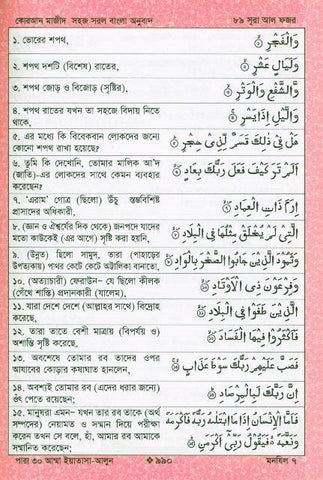 কোরআন মাজীদ সহজ সরল বাংলা অনুবাদ
৮৯ সূরা আল ফজর
১. ভোরের শপথ,
وَالْفَجْرِ
২. শপথ দশটি (বিশেষ) রাতের,
وَلَيَالٍ عَشْرٍ
৩. শপথ জোড় ও বিজোড় (সৃষ্টির),
وَالشَّفْعِ وَالْوَتْرِ
৪. শপথ রাতের যখন তা সহজে বিদায় নিতে
থাকে,
وَاللَّيْلِ إِذَا يَسْرِ
৫. এর মধ্যে কি বিবেকবান লোকদের জন্যে
কোনো শপথ রাখা হয়েছে?
هَلْ فِي ذَلِكَ قَسَمٌ لِّذِي حِجْرٍ
৬. তুমি কি দেখোনি, তোমার মালিক আ'দ
(জাতি)-এর লোকদের সাথে কেমন ব্যবহার
করেছেন?
أَلَمْ تَرَ كَيْفَ فَعَلَ رَبُّكَ بِعَادٍ
৭. 'এরাম' গোত্র (ছিলো) উঁচু স্তম্ভবিশিষ্ট
প্রাসাদের অধিকারী,
إِرَمَ ذَاتِ الْعِمَادِ
৮. (জ্ঞান ও ঐশ্বর্যের দিক থেকে) জনপদে যাদের
মতো কাউকেই (এর আগে) সৃষ্টি করা হয়নি,
الَّتِي لَمْ يُخْلَقْ مِثْلُهَا فِي الْبِلَادِ
৯. (উন্নত) ছিলো সামুদ, তারা (পাহাড়ের
উপত্যকায়) পাথর কেটে কেটে অট্টালিকা বানাতো,
وَثَمُودَ الَّذِينَ جَابُوا الصَّخْرَ بِالْوَادِ
১০. (অত্যাচারী) ফেরাউন– যে ছিলো কীলক
(গেঁথে শাস্তি) প্রদানকারী (যালেম),
وَفِرْعَوْنَ ذِي الْأَوْتَادِ
১১. যারা দেশে দেশে (আল্লাহর সাথে) বিদ্রোহ
করেছে,
الَّذِينَ طَغَوْا فِي الْبِلَادِ
১২. তারা তাতে বেশী মাত্রায় (বিপর্যয় ও)
অশান্তি সৃষ্টি করেছে,
فَأَكْثَرُوا فِيهَا الْفَسَادَ
১৩. অবশেষে তোমার রব তাদের ওপর
আযাবের কোড়ার কষাঘাত হানলেন,
فَصَبَّ عَلَيْهِمْ رَبُّكَ سَوْطَ عَذَابٍ
১৪. অবশ্যই তোমার রব (এদের ধরার জন্যে)
ওঁৎ পেতে রয়েছেন;
إِنَّ رَبَّكَ لَبِالْمِرْصَادِ
১৫. মানুষরা এমন– যখন তার রব তাকে (অর্থ
সম্পদের) নেয়ামত ও সম্মান দিয়ে পরীক্ষা
করেন তখন সে বলে, হাঁ, আমার রব আমাকে
সম্মানিত করেছেন;
فَأَمَّا الْإِنْسَانُ إِذَا مَا ابْتَلَاهُ رَبُّهُ فَأَكْرَمَهُ
وَنَعَّمَهُ فَيَقُولُ رَبِّي أَكْرَمَنِ
পারা ৩০ আম্মা ইয়াতাসা-আলুন
৯৯০
মনযিল ৭